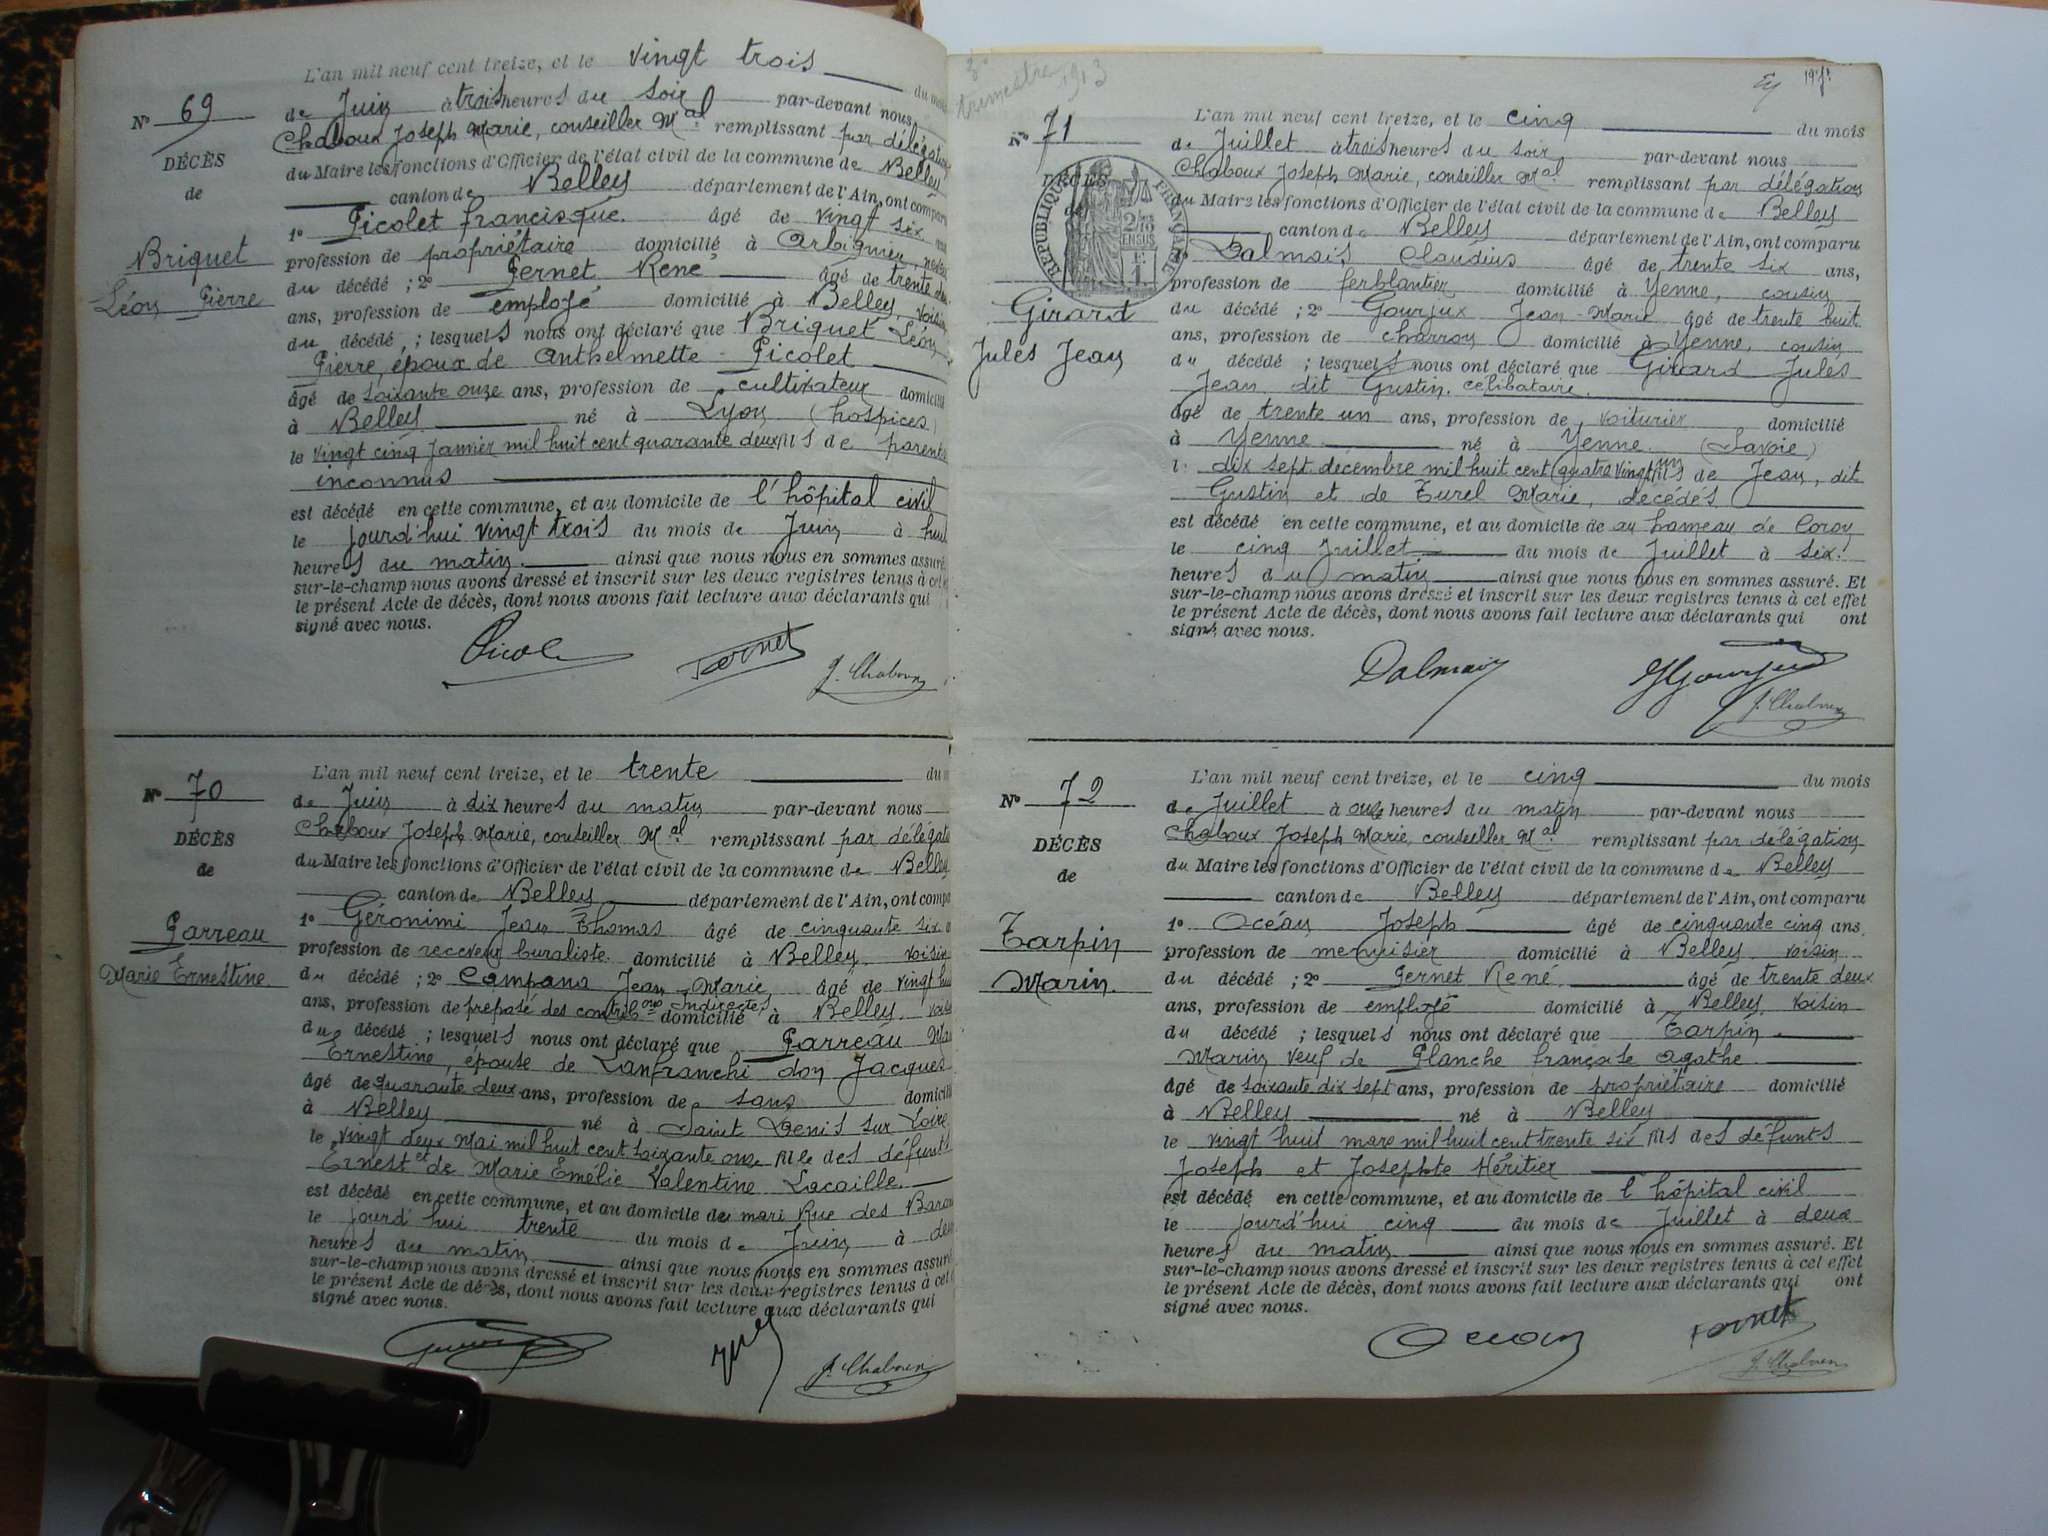 L'an mil neuf cent treize, et le vingt trois du
N° 69
de Juin à trois heures du soir par-devant nous,
Chaboux Joseph Marie, conseiller Mal remplissant par délégation
DÉCÈS
du Maire les fonctions d'Officier de l'état civil de la commune de Belley
de
canton de Belley département de l'Ain, ont comparu
1° Picolet francisque. âgé de vingt six
Briquet
Léon Pierre
profession de propriétaire domicilié à Arbignieu, neveu
du décédé ; 2° Pernet René âgé de trente deux
ans, profession de employé domicilié à Belley, voisin
du décédé ; lesquels nous ont déclaré que Briquet Léon
Pierre, époux de Anthelmette Picolet
âgé de soixante onze ans, profession de cultivateur domicilié
à Belley né à Lyon (hospices)
le vingt cinq Janvier mil huit cent quarante deux fils de parents
inconnus
est décédé en cette commune, et au domicile de l'hôpital civil
le jourd'hui vingt trois du mois de Juin à huit
heures du matin. ainsi que nous nous en sommes assuré.
sur-le-champ nous avons dressé et inscrit sur les deux registres tenus à cet
le présent Acte de décès, dont nous avons fait lecture aux déclarants qui
signé avec nous.
Picolet Pernet J. Chaboux
L'an mil neuf cent treize, et le trente du
N° 70
de Juin à dix heures du matin par-devant nous
Chaboux Joseph Marie, conseiller Mal remplissant par délégation
DÉCÈS
du Maire les fonctions d'Officier de l'état civil de la commune de Belley
de
canton de Belley département de l'Ain, ont comparu
Parreau
Marie Ernestine.
1° Géronimi Jean Thomas âgé de cinquante six
profession de receveur buraliste. domicilié à Belley. voisin
du décédé ; 2° Campana Jean Marie âgé de vingt huit
ans, profession de préposé des contribons Indirectes domicilié à Belley. voisin
du décédé ; lesquels nous ont déclaré que Parreau Marie
Ernestine, épouse de Lanfranchi don Jacques
âgé de quarante deux ans, profession de sans domicilié
à Belley né à Saint Denis sur Loire
le vingt deux Mai mil huit cent soixante onze fille des défunts
Ernest et de Marie Emélie Valentine Lacaille.
est décédé en cette commune, et au domicile du mari Rue des Barons
le jourd'hui trente du mois de Juin à deux
heures du matin. ainsi que nous nous en sommes assuré
sur-le-champ nous avons dressé et inscrit sur les deux registres tenus à cet
le présent Acte de décès, dont nous avons fait lecture aux déclarants qui
signé avec nous.
J. Chaboux
3e
trimestre 1913
L'an mil neuf cent treize, et le cinq du mois
N° 71
de Juillet à trois heures du soir par-devant nous
Chaboux Joseph Marie, conseiller Mal remplissant par délégation
DÉCÈS
du Maire les fonctions d'Officier de l'état civil de la commune de Belley
RÉPUBLIQUE FRANÇAISE
2/10
EN SUS
1 F.
canton de Belley département de l'Ain, ont comparu
1° Dalmais Claudius âgé de trente six ans,
Girard
Jules Jean
profession de ferblantier domicilié à Yenne, cousin
du décédé ; 2° Gourjux Jean-Marie âgé de trente huit
ans, profession de charron domicilié à Yenne, cousin
du décédé ; lesquels nous ont déclaré que Girard Jules
Jean dit Gustin. célibataire.
âgé de trente un ans, profession de voiturier domicilié
à Yenne né à Yenne (Savoie)
le dix sept décembre mil huit cent quatre vingt un fils de Jean, dit
Gustin et de Turel Marie, décédés
est décédé en cette commune, et au domicile de au hameau de Coron
le cinq Juillet du mois de Juillet à six
heures du matin ainsi que nous nous en sommes assuré. Et
sur-le-champ nous avons dressé et inscrit sur les deux registres tenus à cet effet
le présent Acte de décès, dont nous avons fait lecture aux déclarants qui ont
signé avec nous.
Dalmais JGourjux
J. Chaboux
L'an mil neuf cent treize, et le cinq du mois
N° 72
de Juillet à onze heures du matin par-devant nous
Chaboux Joseph Marie, conseiller Mal remplissant par délégation
DÉCÈS
du Maire les fonctions d'Officier de l'état civil de la commune de Belley
de
canton de Belley département de l'Ain, ont comparu
Tarpin
Marin.
1° Océan Joseph âgé de cinquante cinq ans,
profession de menuisier domicilié à Belley voisin
du décédé ; 2° Pernet René. âgé de trente deux
ans, profession de employé domicilié à Belley, voisin
du décédé ; lesquels nous ont déclaré que Tarpin
Marin veuf de Planche françoise Agathe
âgé de soixante dix sept ans, profession de propriétaire domicilié
à Belley né à Belley
le vingt huit mars mil huit cent trente six fils des défunts
Joseph et Josephte Héritier
est décédé en cette commune, et au domicile de l'hôpital civil
le jourd'hui cinq du mois de Juillet à deux
heures du matin ainsi que nous nous en sommes assuré. Et
sur-le-champ nous avons dressé et inscrit sur les deux registres tenus à cet effet
le présent Acte de décès, dont nous avons fait lecture aux déclarants qui ont
signé avec nous.
Océan Pernet
J. Chaboux